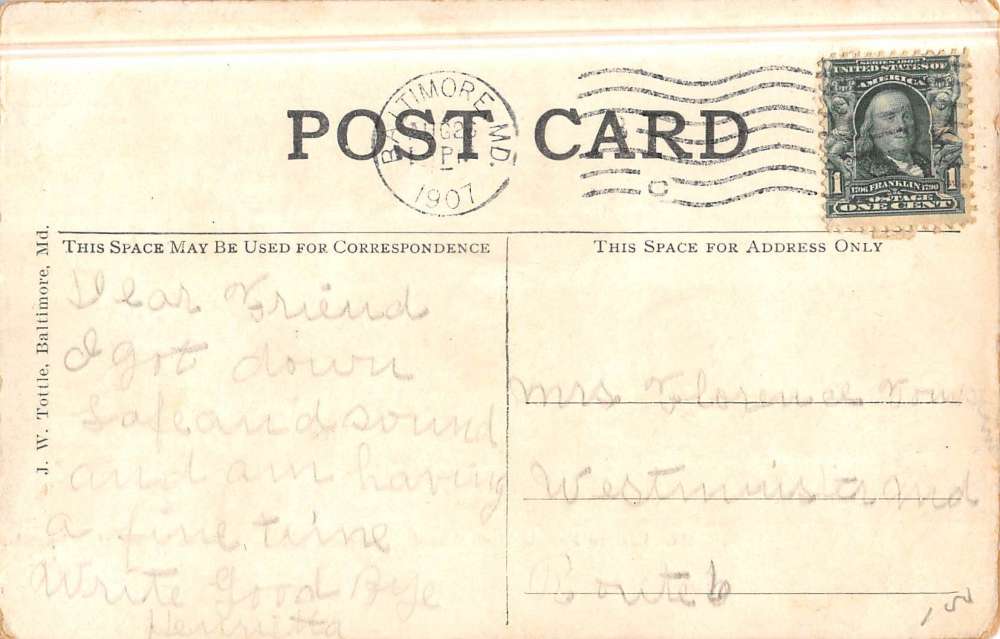 POST CARD
BALTIMORE, MD.
AUG 26
1907
SERIES 1902
UNITED STATES OF
AMERICA
1 1706 FRANKLIN 1790 1
POSTAGE
ONE CENT
THIS SPACE MAY BE USED FOR CORRESPONDENCE
THIS SPACE FOR ADDRESS ONLY
J. W. Tottle, Baltimore, Md.
Dear Friend
I got down
safe and sound
and am having
a fine time
Write Good Bye
Henrietta
Mrs Florence
Westminster Md
Route 6